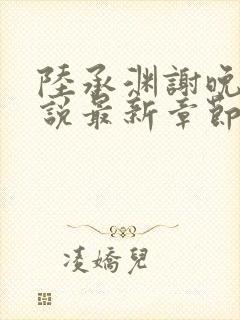 陸承淵謝晚
說最新章節
凌嬌兒